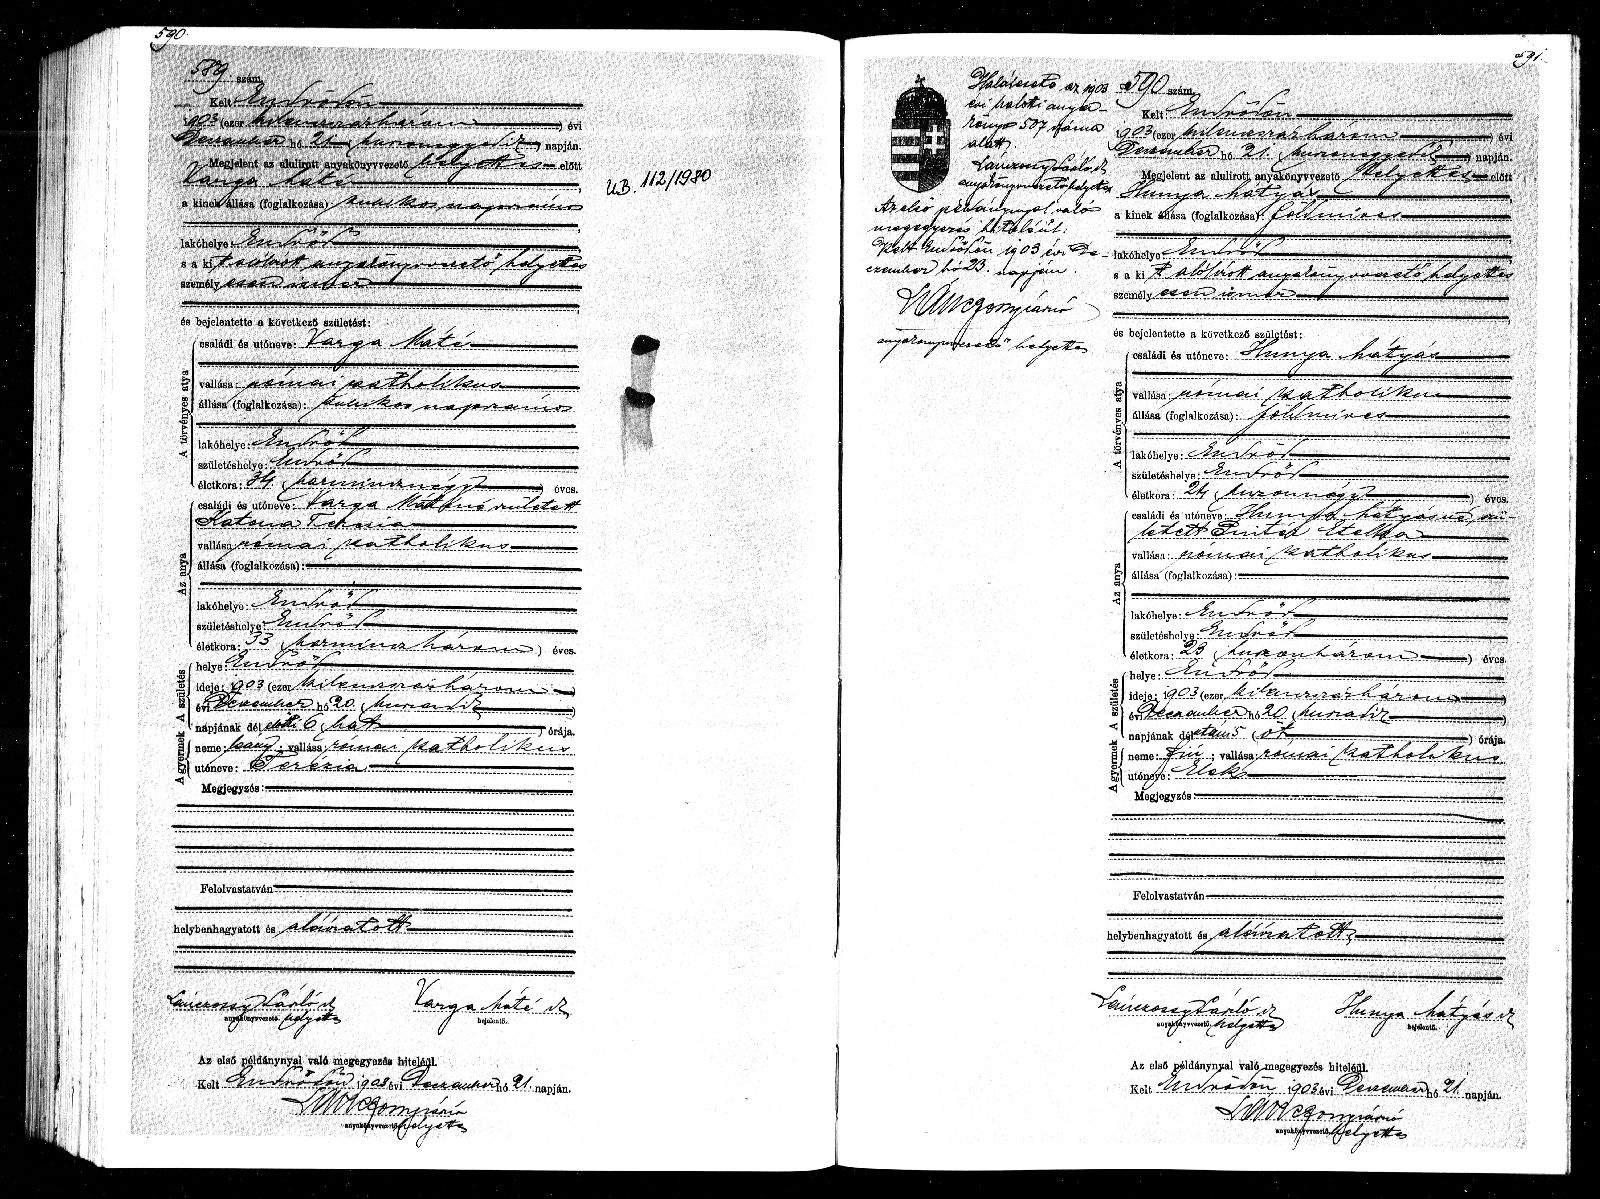 590.
589. szám.
Kelt Endrődön
1903 (ezer kilenczszázhárom) évi
December hó 21. (huszonegyedik) napján.
Megjelent az alulirott anyakönyvvezető helyettes előtt
Varga Máté
a kinek állása (foglalkozása): kubikos napszámos
lakóhelye: Endrőd
s a kit alólirott anyakönyvvezető helyettes
személyesen ismer
és bejelentette a következő születést:
A törvényes atya
családi és utóneve: Varga Máté
vallása: római katholikus
állása (foglalkozása): kubikos napszámos
lakóhelye: Endrőd
születéshelye: Endrőd
életkora: 34 (harmincznégy) éves.
Az anya
családi és utóneve: Varga Máténé született
Katona Terézia
vallása: római katholikus
állása (foglalkozása):
lakóhelye: Endrőd
születéshelye: Endrőd
életkora: 33 (harminczhárom) éves.
A születés
helye: Endrőd
ideje: 1903 (ezer kilenczszázhárom)
évi December hó 20 (huszadik)
napjának dél előtti 6 (hat) órája.
A gyermek
neme: leány; vallása: római katholikus
utóneve: Terézia
Megjegyzés:
Felolvastatván
helybenhagyatott és aláiratott.
Lánczossy László sk Varga Máté sk
anyakönyvvezető helyettes bejelentő.
Az első példánynyal való megegyezés hiteléül.
Kelt Endrődön 1903 évi December hó 21 napján.
anyakönyvvezető helyettes
UB. 112/1980
591.
Haláleset az 1903
évi haloti anya
könyv 507 száma
alatt
anyakönyvvezető helyettes
Az első példánynyal való
megegyezés hiteléül:
Kelt Endrődön 1903 évi De-
czember hó 23. napján.
anyakönyvvezető helyettes
590 szám.
Kelt Endrődön
1903 (ezer kilenczszázhárom) évi
December hó 21. (huszonegyedik) napján.
Megjelent az alulirott anyakönyvvezető helyettes előtt
Hunya Mátyás
a kinek állása (foglalkozása): földmives
lakóhelye: Endrőd
s a kit alólirott anyakönyvvezető helyettes
személyesen ismer
és bejelentette a következő születést:
A törvényes atya
családi és utóneve: Hunya Mátyás
vallása: római katholikus
állása (foglalkozása): földmives
lakóhelye: Endrőd
születéshelye: Endrőd
életkora: 24 (huszonnégy) éves.
Az anya
családi és utóneve: Hunya Mátyásné szü-
letett Pintér Etelka
vallása: római katholikus
állása (foglalkozása):
lakóhelye: Endrőd
születéshelye: Endrőd
életkora: 23 (huszonhárom) éves.
A születés
helye: Endrőd
ideje: 1903 (ezer kilenczszázhárom)
évi December hó 20 (huszadik)
napjának délutáni 5 (öt) órája.
A gyermek
neme: fiú; vallása: római katholikus
utóneve: Elek
Megjegyzés:
Felolvastatván
helybenhagyatott és aláiratott.
Lánczossy László sk Hunya Mátyás sk
anyakönyvvezető helyettes bejelentő.
Az első példánynyal való megegyezés hiteléül.
Kelt Endrődön 1903 évi December hó 21 napján.
anyakönyvvezető helyettes